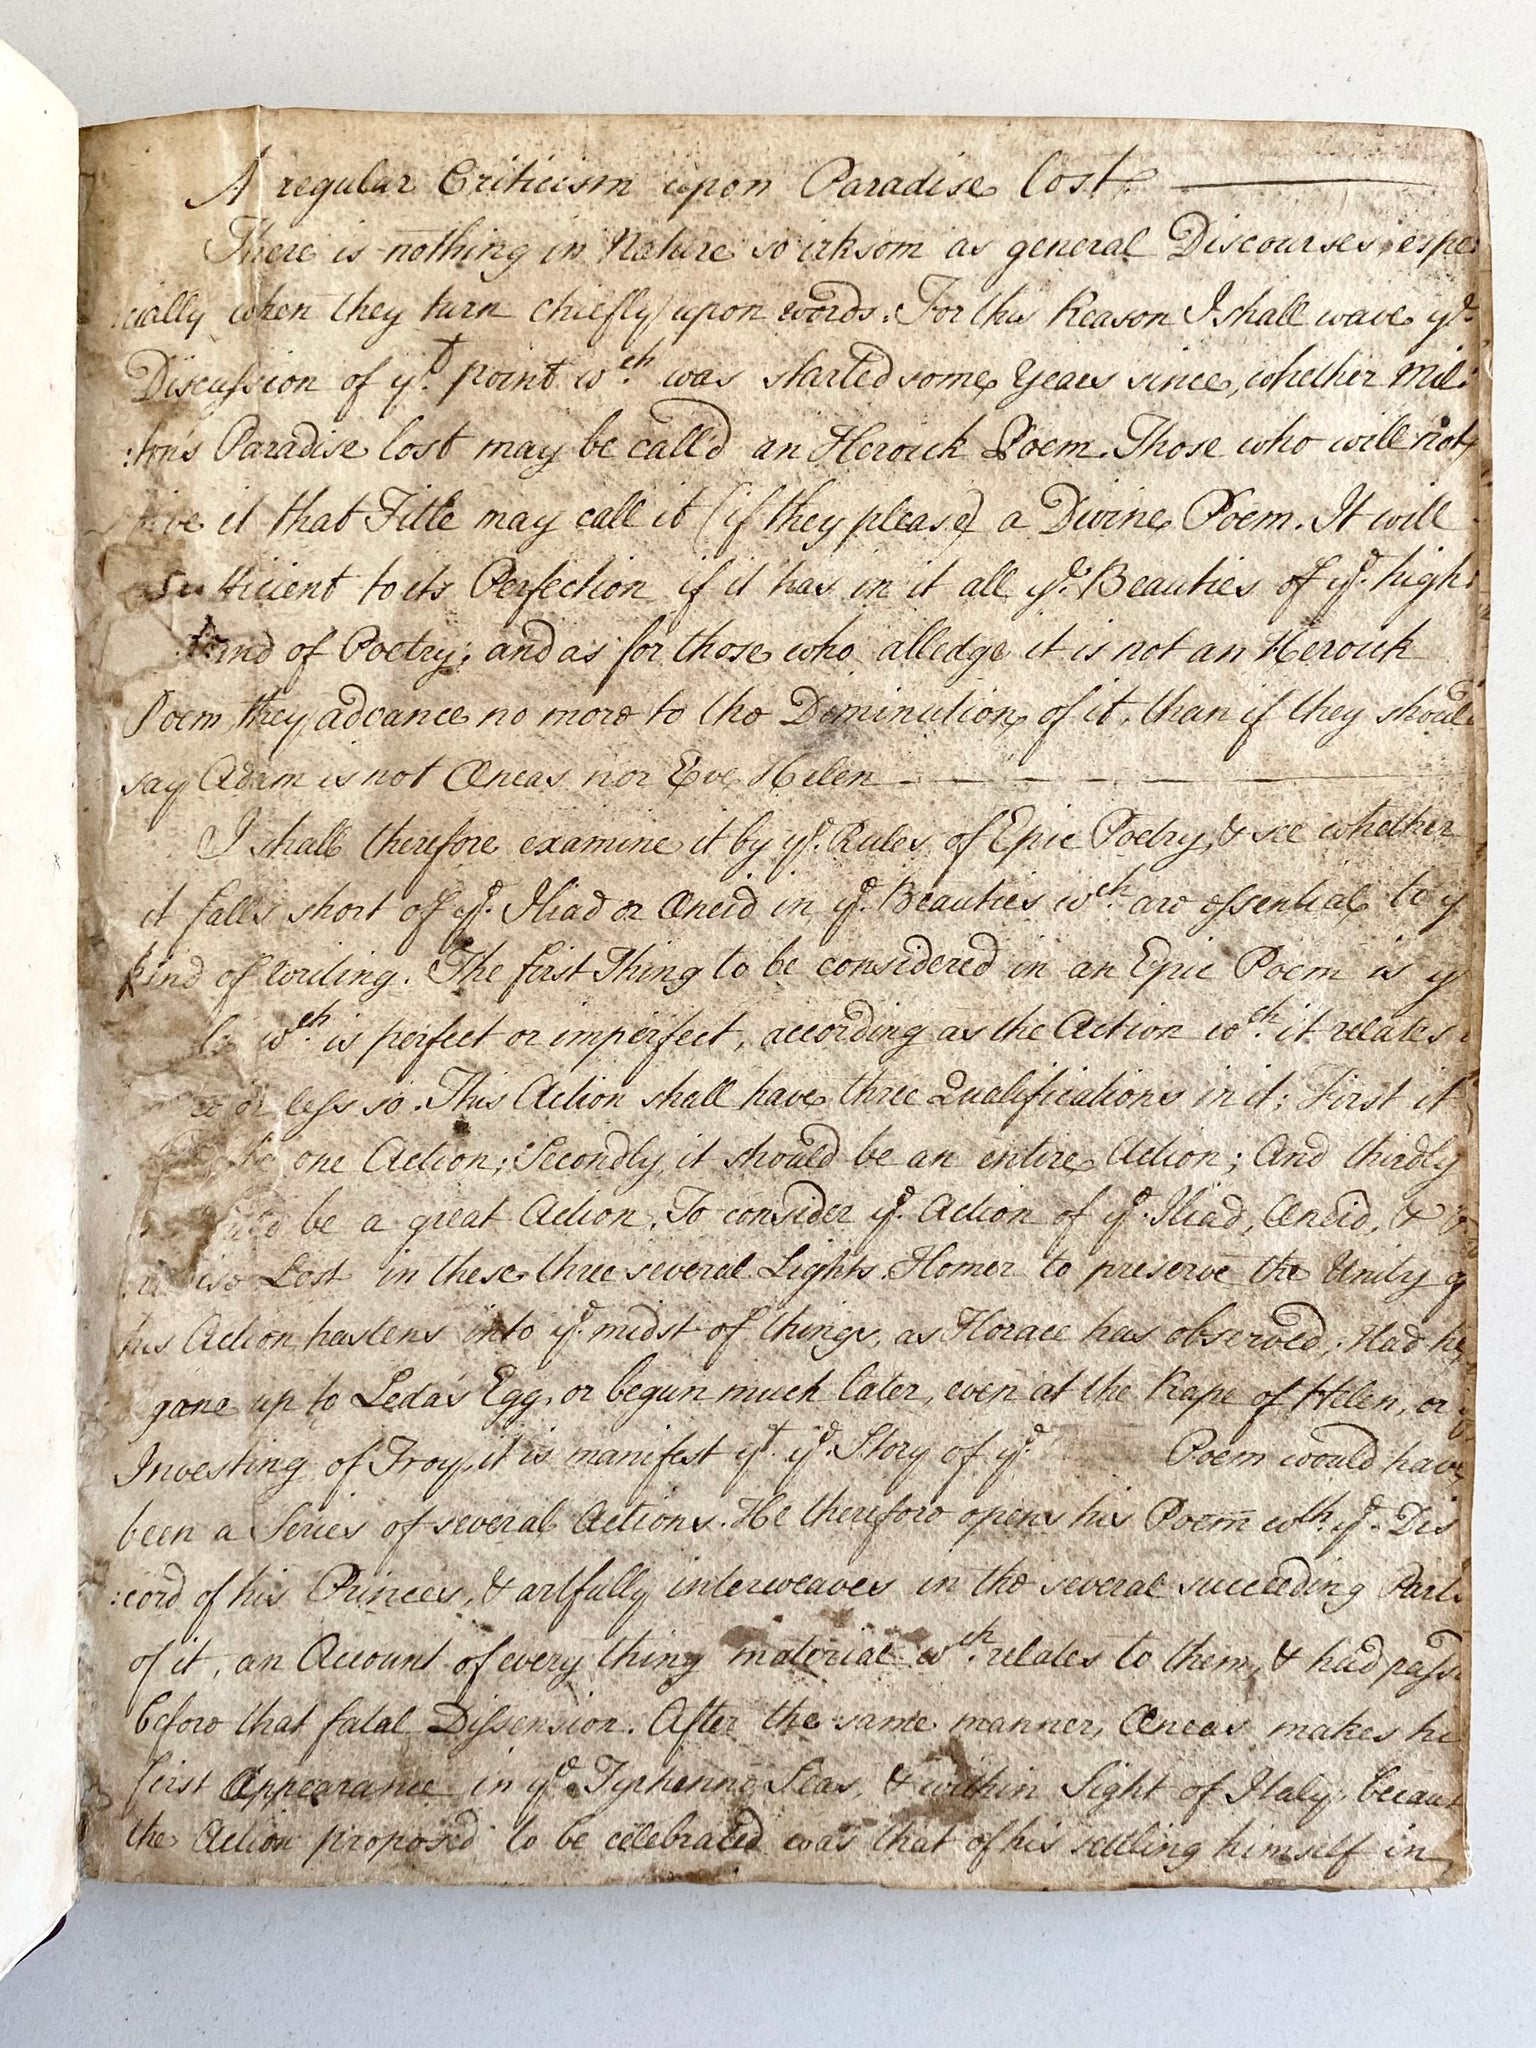 A regular Criticism upon Paradise Lost.
There is nothing in Nature so irksom as general Discourses, espe:
:cially when they turn chiefly upon words. For this Reason I shall wave ye.
Discussion of yt. point wch. was started some Years since, whether Mil:
:ton's Paradise lost may be call'd an Heroick Poem. Those who will not
it that Title may call it (if they please) a Divine Poem. It will
sufficient to its Perfection if it has in it all ye. Beauties of ye. high:
kind of Poetry; and as for those who alledge it is not an Heroick
Poem, they advance no more to the Diminution of it, than if they should
say Adam is not Æneas nor Eve Helen
I shall therefore examine it by ye. Rules of Epic Poetry, & see whether
it falls short of ye. Iliad or Æneid in ye. Beauties wch. are essential to y
kind of Writing. The first Thing to be considered in an Epic Poem is y
wch. is perfect or imperfect, according as the Action wch. it relates
or less so. This Action shall have three Qualifications in it; First it
be one Action; Secondly it should be an entire Action; And thirdly
be a great Action. To consider ye. Action of ye. Iliad, Æneid, &
Lost in these three several Lights. Homer to preserve the Unity of
his Action hastens into ye. midst of things, as Horace has observed; Had he
gone up to Leda's Egg, or begun much later, even at the Rape of Helen, or
Investing of Troy, it is manifest yt. ye. Story of ye. Poem would have
been a Series of several Actions. He therefore opens his Poem wth. ye. Dis
:cord of his Princes, & artfully interweaves in the several succeeding Parts
of it, an Account of every thing material wch. relates to them, & had pass
before that fatal Dissension. After the same manner, Æneas makes hi
first Appearance in ye. Tyrhenne Seas, & within Sight of Italy, becaus
the Action proposed to be celebrated was that of his settling himself in